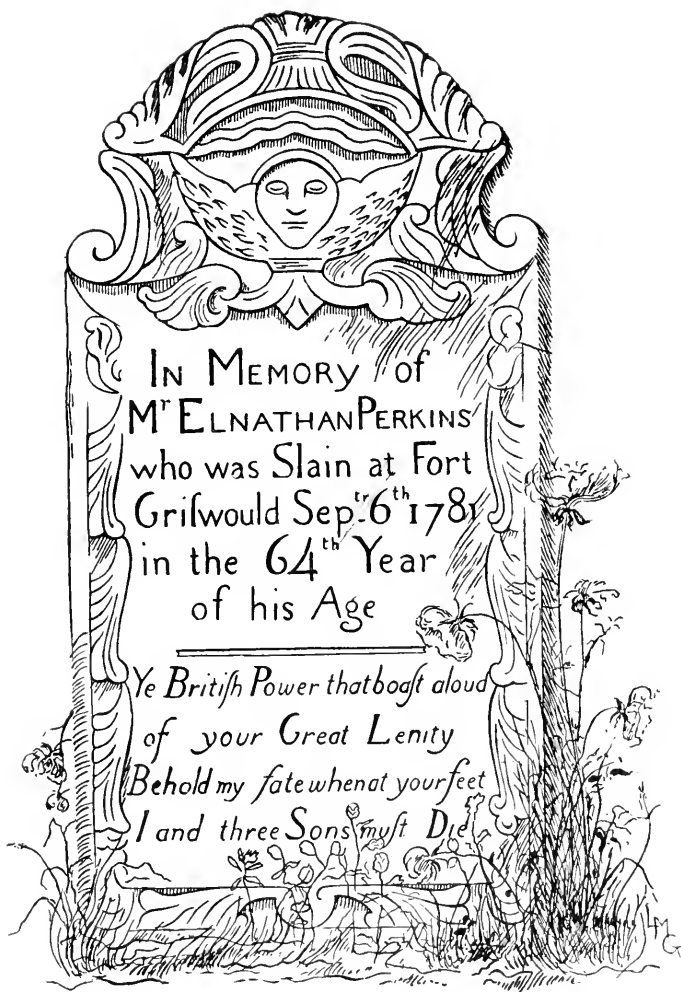 In Memory of
Mr Elnathan Perkins
who was Slain at Fort
Griſwould Septr. 6th 1781
in the 64th Year
of his Age
Ye Britiſh Power that boaſt aloud
of your Great Lenity
Behold my fate when at your feet
I and three Sons muſt Die
LMG